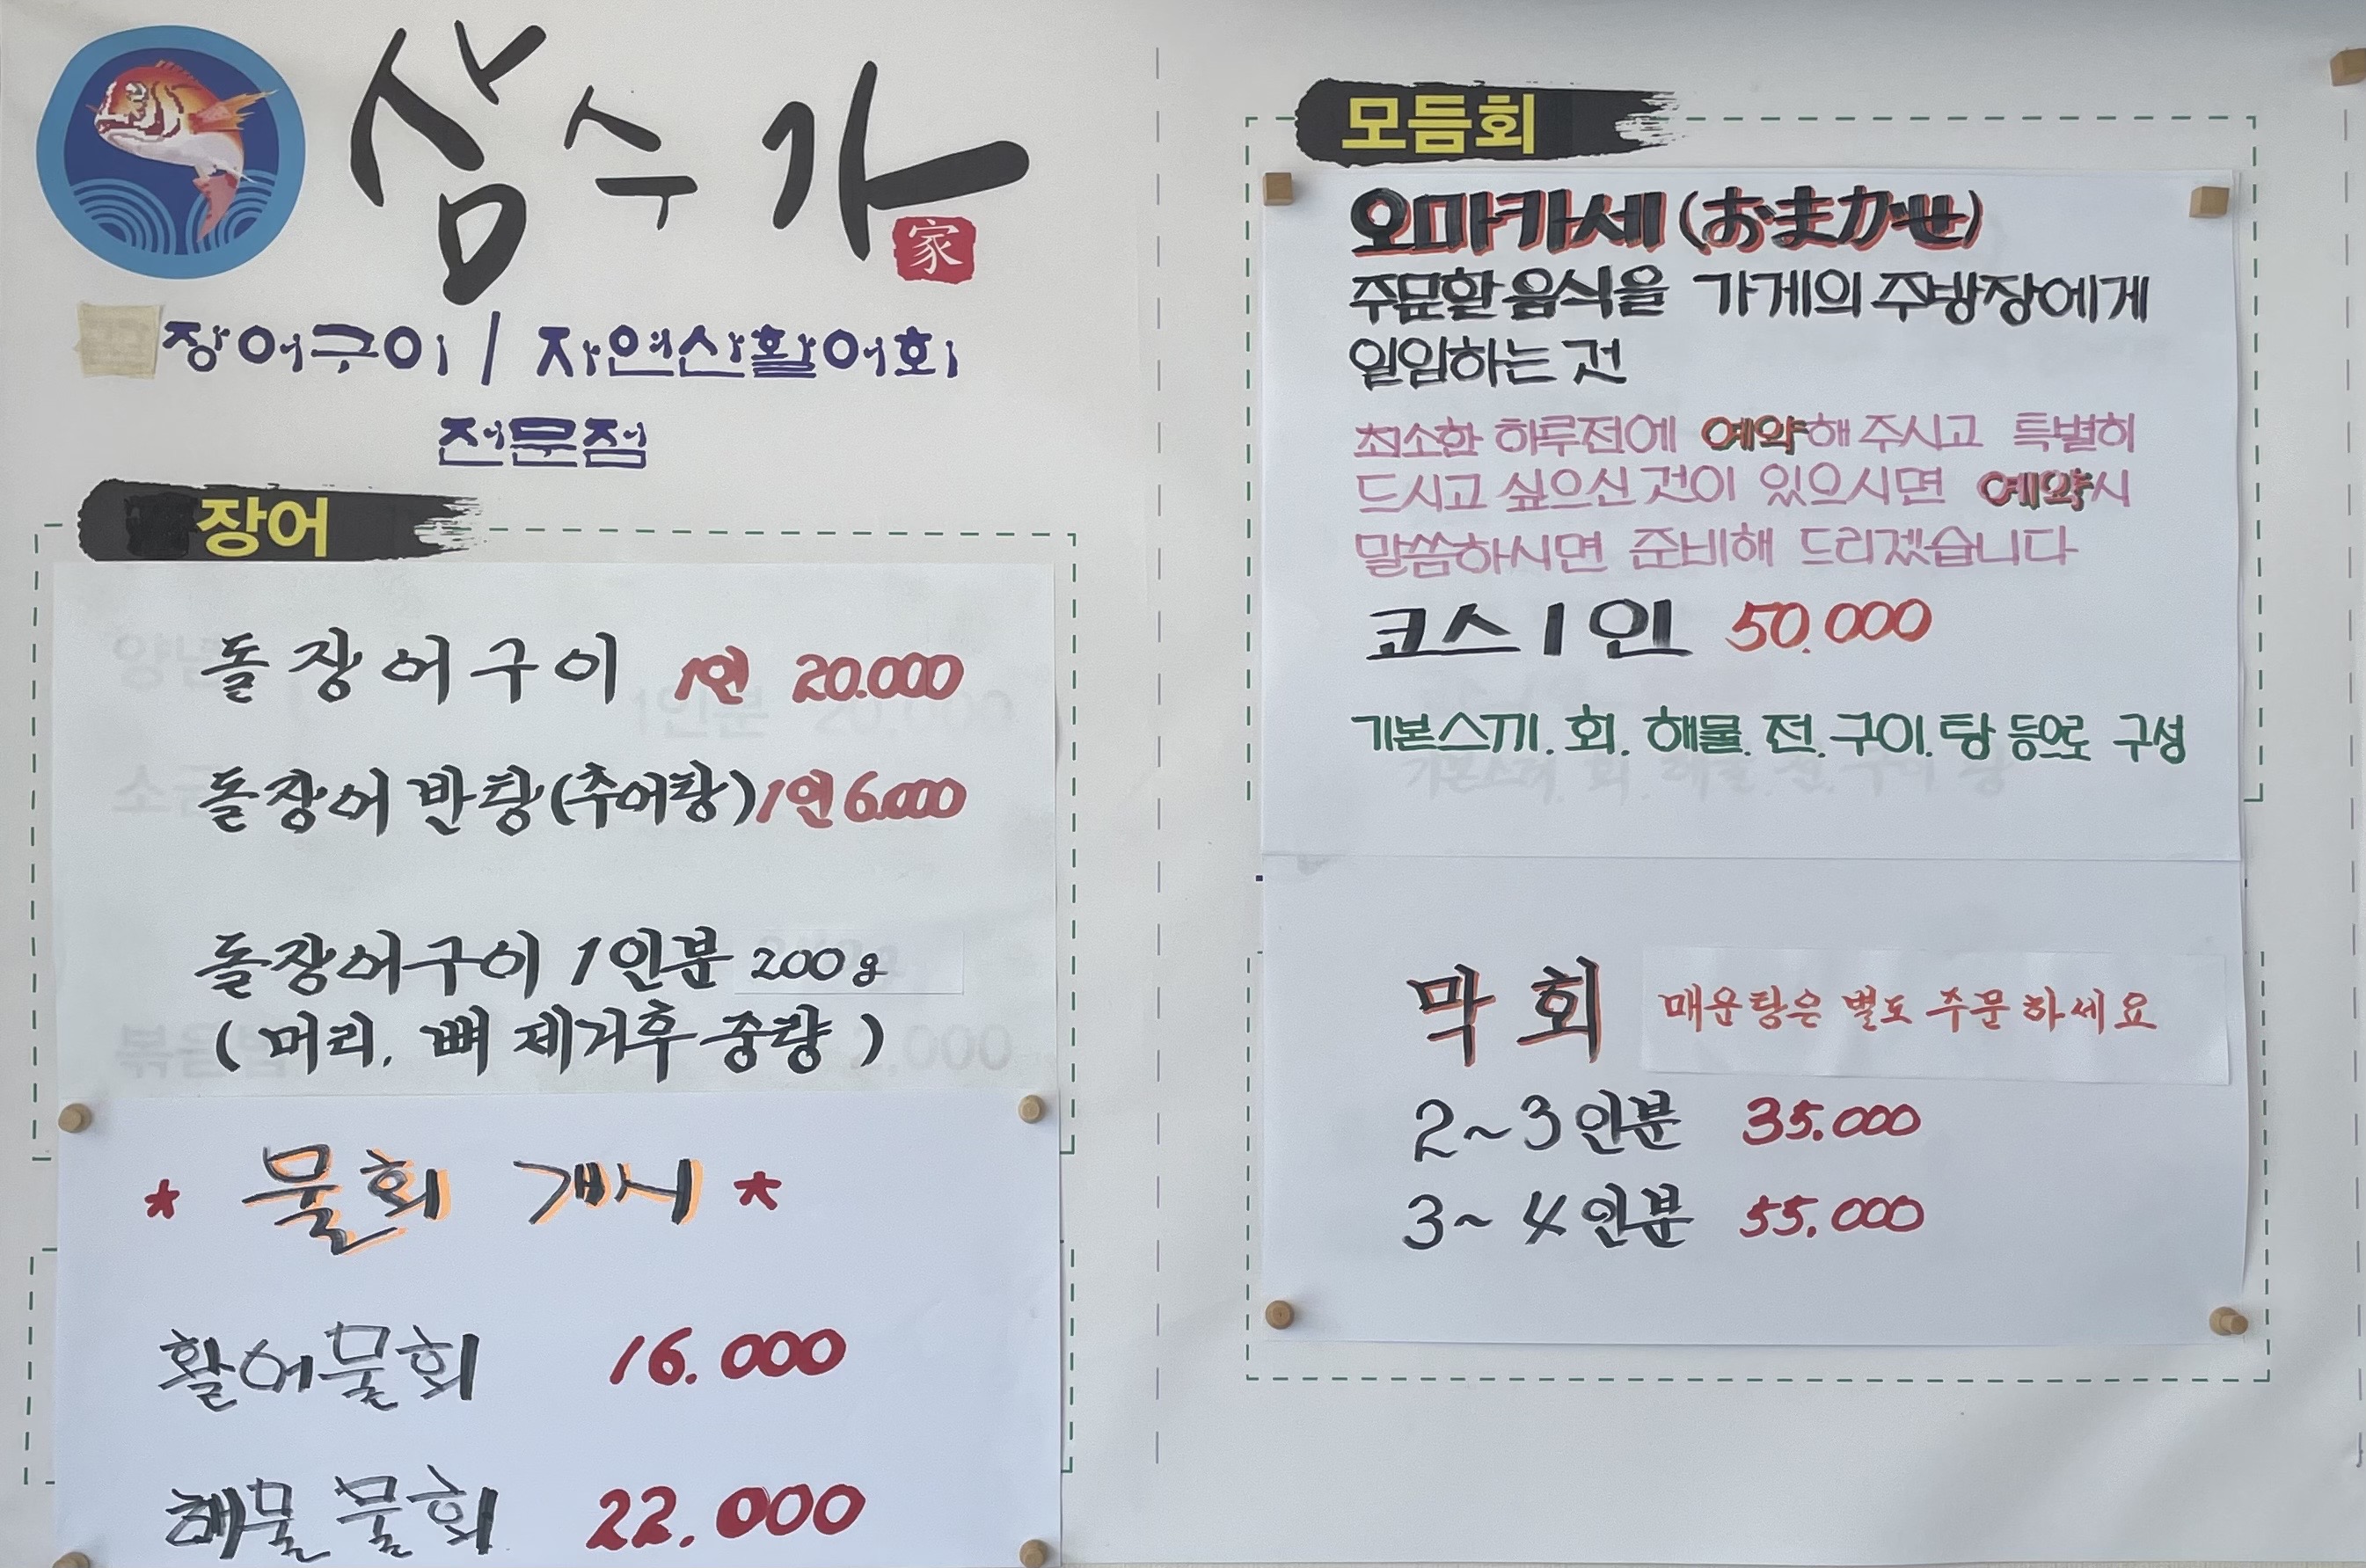 삼수가
家
장어구이 / 자연산활어회
전문점
장어
돌장어구이 1인 20.000
돌장어 반탕(추어탕) 1인 6.000
돌장어구이 1인분 200g
(머리. 뼈 제거후 중량)
* 물회 개시 *
활어물회 16.000
해물물회 22.000
모듬회
오마카세 (おまかせ)
주문할 음식을 가게의 주방장에게
일임하는 것
최소한 하루전에 예약해 주시고 특별히
드시고 싶으신 것이 있으시면 예약시
말씀하시면 준비해 드리겠습니다
코스 1인 50.000
기본스끼. 회. 해물. 전. 구이. 탕 등으로 구성
막회 매운탕은 별도 주문하세요
2~3인분 35.000
3~4인분 55.000